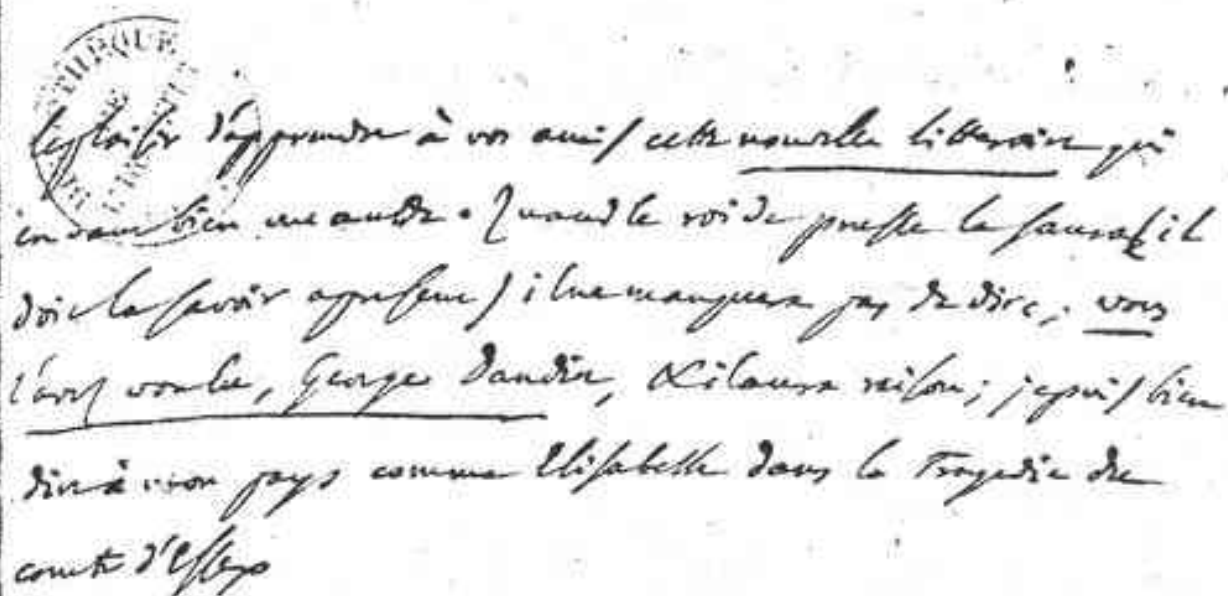 le plaisir d'apprendre à vos amis cette nouvelle litteraire qui
en vaut bien une autre. Quand le roi de prusse la saura (il
doit la savoir apresent) il ne manquera pas de dire, vous
l'avez voulu, George Dandin, & il aura raison; je puis bien
dire à mon pays comme Elisabeth dans la Tragedie du
comte d'Essex